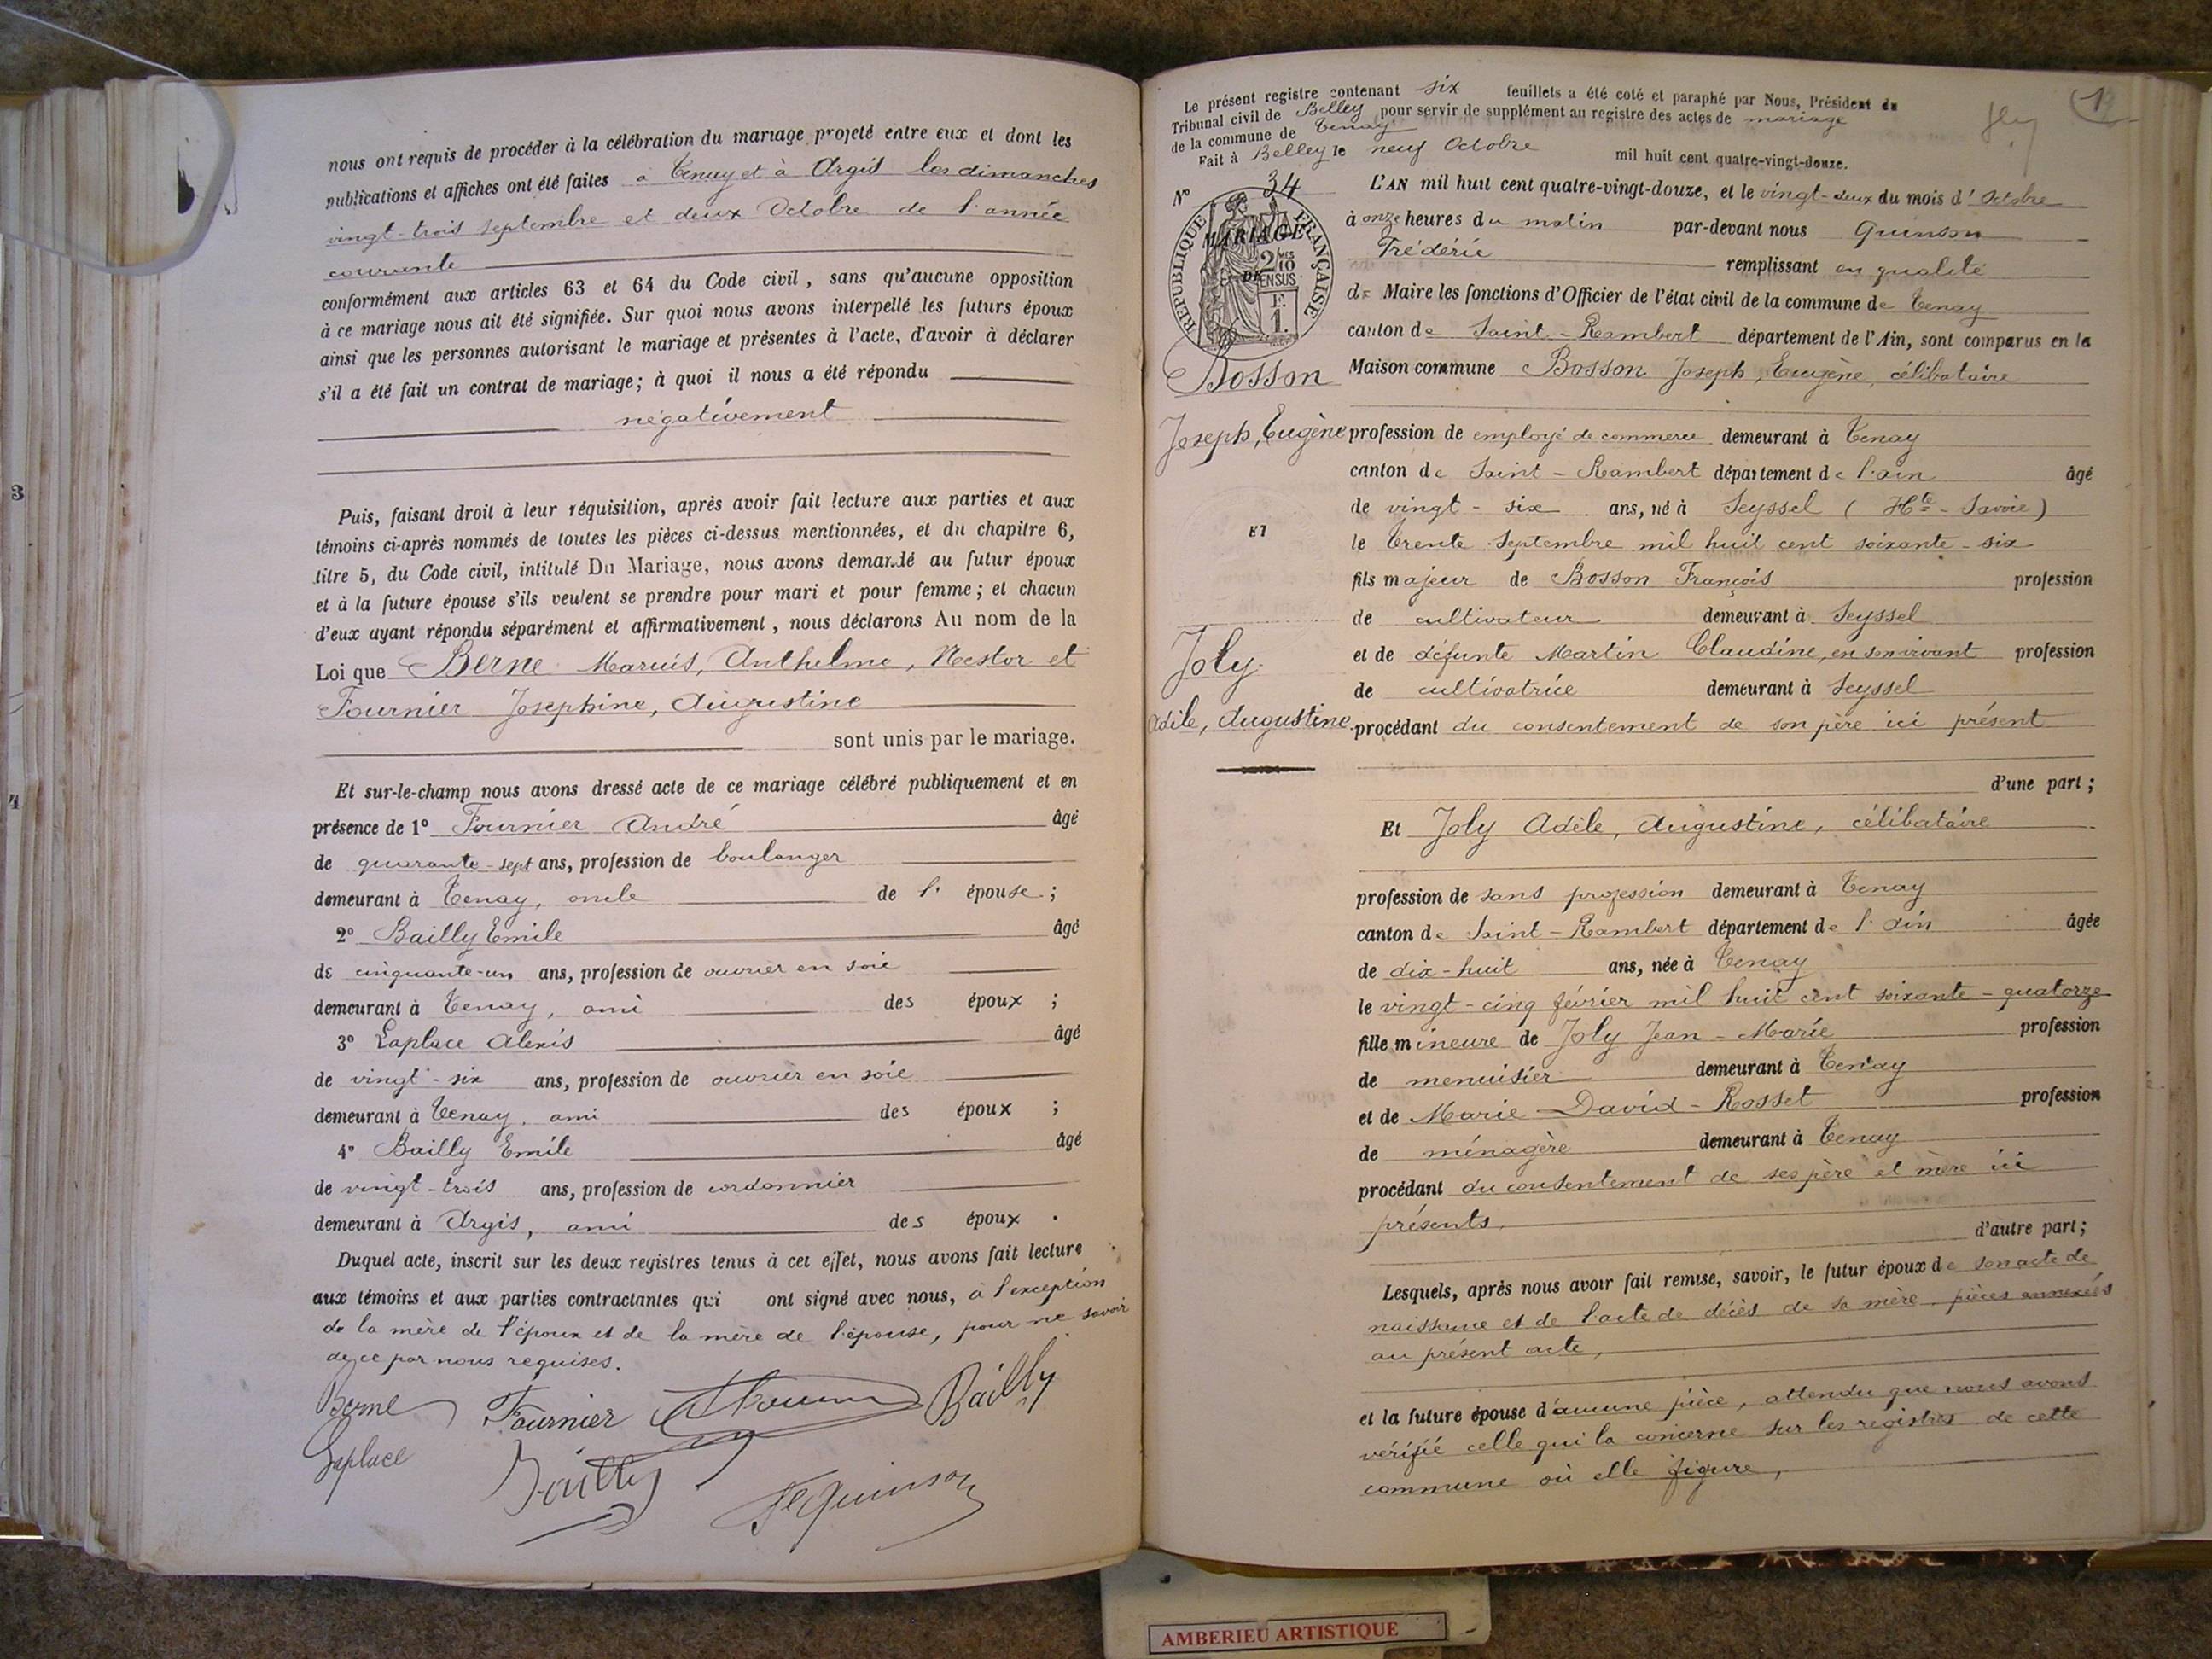 nous ont requis de procéder à la célébration du mariage projeté entre eux et dont les
publications et affiches ont été faites à Tenay et à Argis les dimanches
vingt-trois septembre et deux Octobre de l'année
courante
conformément aux articles 63 et 64 du Code civil, sans qu'aucune opposition
à ce mariage nous ait été signifiée. Sur quoi nous avons interpellé les futurs époux
ainsi que les personnes autorisant le mariage et présentes à l'acte, d'avoir à déclarer
s'il a été fait un contrat de mariage; à quoi il nous a été répondu
négativement
Puis, faisant droit à leur réquisition, après avoir fait lecture aux parties et aux
témoins ci-après nommés de toutes les pièces ci-dessus mentionnées, et du chapitre 6,
titre 5, du Code civil, intitulé Du Mariage, nous avons demandé au futur époux
et à la future épouse s'ils veulent se prendre pour mari et pour femme; et chacun
d'eux ayant répondu séparément et affirmativement, nous déclarons Au nom de la
Loi que Berne Marius, Anthelme, Nestor et
Fournier Joséphine, Augustine
sont unis par le mariage.
Et sur-le-champ nous avons dressé acte de ce mariage célébré publiquement et en
présence de 1° Fournier André âgé
de quarante-sept ans, profession de boulanger
demeurant à Tenay, oncle de l' épouse;
2° Bailly Emile âgé
de cinquante-un ans, profession de ouvrier en soie
demeurant à Tenay, ami des époux;
3° Laplace Alexis âgé
de vingt-six ans, profession de ouvrier en soie
demeurant à Tenay, ami des époux;
4° Bailly Emile âgé
de vingt-trois ans, profession de cordonnier
demeurant à Argis, ami des époux.
Duquel acte, inscrit sur les deux registres tenus à cet effet, nous avons fait lecture
aux témoins et aux parties contractantes qui ont signé avec nous, à l'exception
de la mère de l'époux et de la mère de l'épouse, pour ne savoir
de ce par nous requises.
Berne Fournier Bailly
Laplace Bailly
F Quinson
3
4
Le présent registre contenant six feuillets a été coté et paraphé par Nous, Président du
Tribunal civil de Belley pour servir de supplément au registre des actes de mariage
de la commune de Tenay
Fait à Belley le neuf Octobre mil huit cent quatre-vingt-douze.
N° 34
RÉPUBLIQUE FRANÇAISE
MARIAGE
2 10 MES
DE
EN SUS
F.
1.
Bosson
Joseph, Eugène
ET
Joly
Adèle, Augustine
L'AN mil huit cent quatre-vingt-douze, et le vingt-deux du mois d'Octobre
à onze heures du matin par-devant nous Quinson
Frédéric remplissant en qualité
de Maire les fonctions d'Officier de l'état civil de la commune de Tenay
canton de Saint-Rambert département de l'Ain, sont comparus en la
Maison commune Bosson Joseph, Eugène, célibataire
profession de employé de commerce demeurant à Tenay
canton de Saint-Rambert département de l'ain âgé
de vingt-six ans, né à Seyssel (Hte-Savoie)
le trente Septembre mil huit cent soixante-six
fils majeur de Bosson François profession
de cultivateur demeurant à Seyssel
et de défunte Martin Claudine, en son vivant profession
de cultivatrice demeurant à Seyssel
procédant du consentement de son père ici présent
d'une part;
Et Joly Adèle, Augustine, célibataire
profession de sans profession demeurant à Tenay
canton de Saint-Rambert département de l'ain âgée
de dix-huit ans, née à Tenay
le vingt-cinq février mil huit cent soixante-quatorze
fille mineure de Joly Jean-Marie profession
de menuisier demeurant à Tenay
et de Marie David-Rosset profession
de ménagère demeurant à Tenay
procédant du consentement de ses père et mère ici
présents. d'autre part;
Lesquels, après nous avoir fait remise, savoir, le futur époux de son acte de
naissance et de l'acte de décès de sa mère, pièces annexées
au présent acte,
et la future épouse d'aucune pièce, attendu que nous avons
vérifié celle qui la concerne sur les registres de cette
commune où elle figure,
AMBERIEU ARTISTIQUE